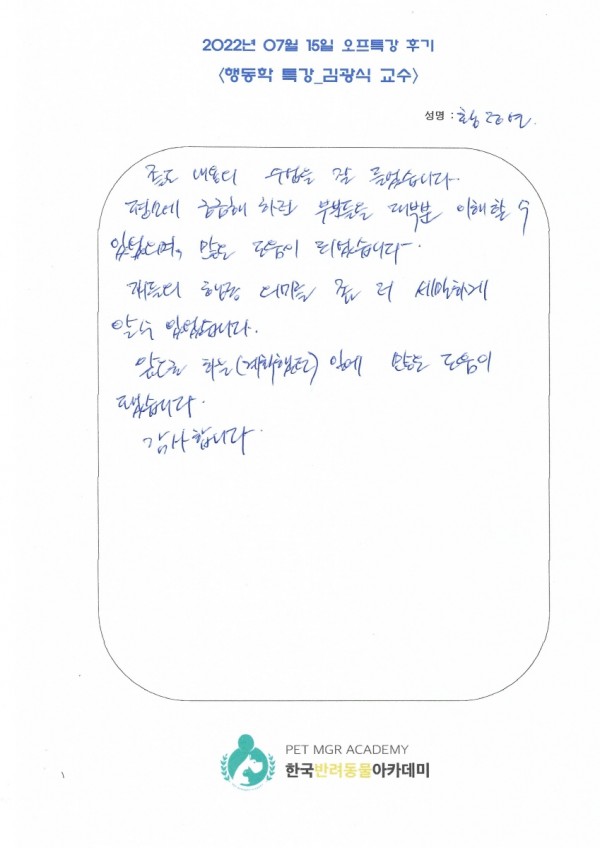 2022년 07월 15일 오프특강 후기
<행동학 특강_김광식 교수>
성명 :
좋은 내용의 수업을 잘 들었습니다.
평소에 궁금해 하던 부분들을 대부분 이해할 수
있었으며, 많은 도움이 되었습니다.
개들의 행동 의미를 좀 더 세밀하게
알 수 있었습니다.
앞으로 하는 일에 많은 도움이
되겠습니다.
감사합니다.
PET MGR ACADEMY
한국반려동물아카데미